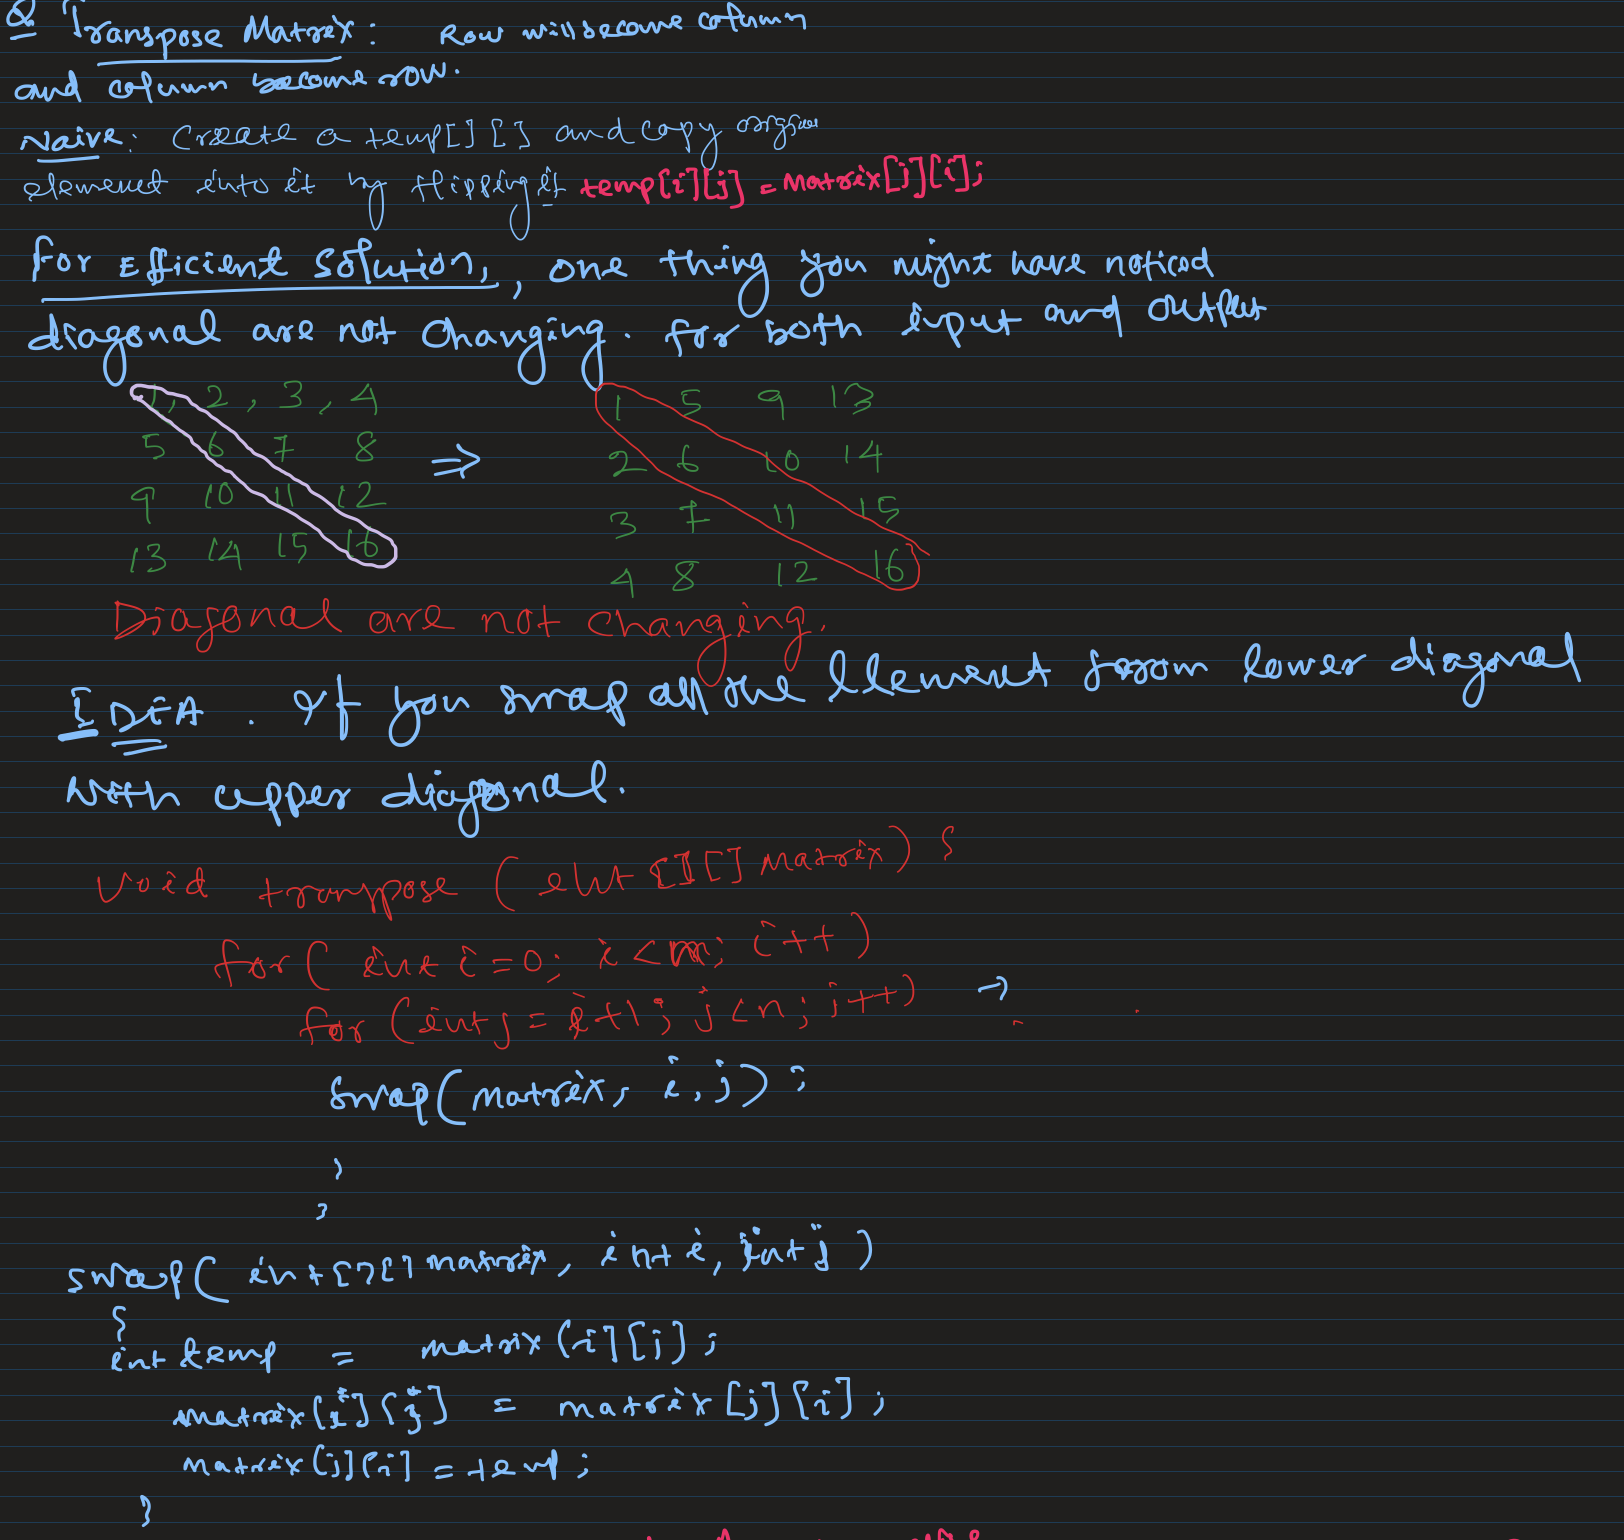 Q Transpose Matrix: Row will become column
and column become row.
Naive: Create a temp[][] and copy
element into it by flipping it temp[i][j] = Matrix[j][i];
For Efficient Solution, , one thing you might have noticed
diagonal are not changing. for both input and output
1, 2, 3, 4
5 6 7 8
9 10 11 12
13 14 15 16
⇒
1 5 9 13
2 6 10 14
3 7 11 15
4 8 12 16
Diagonal are not changing.
IDEA. If you swap all the Element from lower diagonal
with upper diagonal.
void transpose (int [][] matrix) {
for( int i=0; i<m; i++)
for (int j = i+1; j<n; j++) →
swap(matrix, i, j);
}
}
swap( int[][] matrix, int i, int j )
{
int temp = matrix[i][j];
matrix[i][j] = matrix[j][i];
matrix[j][i] = temp;
}